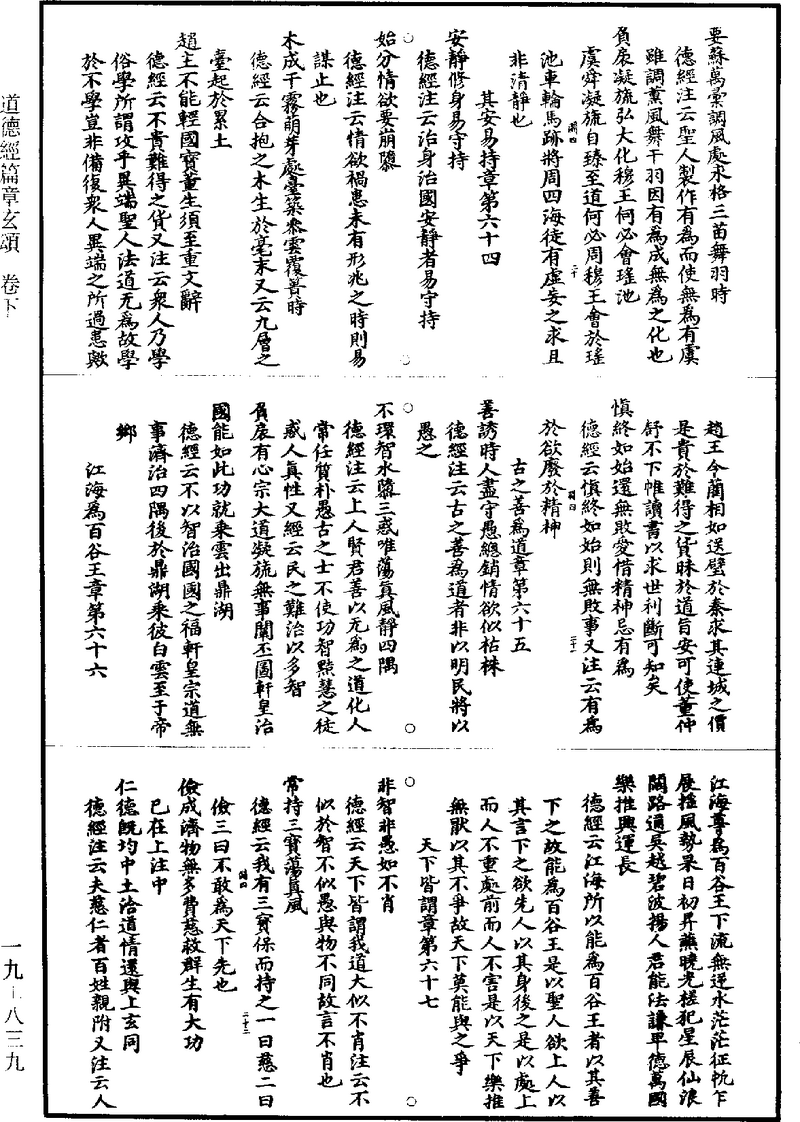 要蘇萬彙調風處求格三苗舞羽時
德經注云聖人製作有為而使無為有虞
雖調薰風舞干羽因有為成無為之化也
負扆凝旒弘大化穆王何必會瑤池
虞舜凝旒自臻至道何必周穆王會於瑤
池車輪馬跡將周四海徒有虛妄之求且
非清靜也
其安易持章第六十四
安靜修身易守持
德經注云治身治國安靜者易守持
始分情欲要崩隳
德經注云情欲禍患未有形兆之時則易
謀止也
木成干霧萌芽處臺築參雲覆簣時
德經云合抱之木生於毫末又云九層之
臺起於累土
趙主不能輕國寶董生須至重文辭
德經云不貴難得之貨又注云眾人乃學
俗學所謂攻乎異端聖人法道无為故學
於不學豈非備復眾人異端之所過患歟
趙王令藺相如送璧於秦求其連城之價
是貴於難得之貨昧於道旨安可使董仲
舒不下帷讀書以求世利斷可知矣
慎終如始還無敗愛惜精神忌有為
德經云慎終如始則無敗事又注云有為
於欲廢於精神
古之善為道章第六十五
善誘時人盡守愚總銷情欲似枯株
德經注云古之善為道者非以明民將以
愚之
不環智水隳三惑唯蕩真風靜四隅
德經注云上人賢君善以无為之道化人
常任質朴愚古之士不使功智黠慧之徒
惑人真性又經云民之難治以多智
負扆有心宗大道凝旒無事闡丕圖軒皇治
國能如此功就乘雲出鼎湖
德經云不以智治國國之福軒皇宗道無
事濟治四隅後於鼎湖乘彼白雲至于帝
鄉
江海為百谷王章第六十六
江海尊為百谷王下流無逆水茫茫征帆乍
展摇風勢杲日初昇蘸曉光槎犯星辰仙浪
闊路通吳越碧波揚人君能法謙卑德萬國
樂推興運長
德經云江海所以能為百谷王者以其善
下之故能為百谷王是以聖人欲上人以
其言下之欲先人以其身後之是以處上
而人不重處前而人不害是以天下樂推
無猒以其不爭故天下莫能與之爭
天下皆謂章第六十七
非智非愚如不肖
德經云天下皆謂我道大似不肖注云不
似於智不似愚與物不同故言不肖也
常持三寶蕩真風
德經云我有三寶保而持之一曰慈二曰
儉三曰不敢為天下先也
儉成濟物無多費慈救群生有大功
已在上注中
仁德旣均中土洽道情還與上玄同
德經注云夫慈仁者百姓親附又注云人
道德經篇章玄頌 卷下
一九—八三九